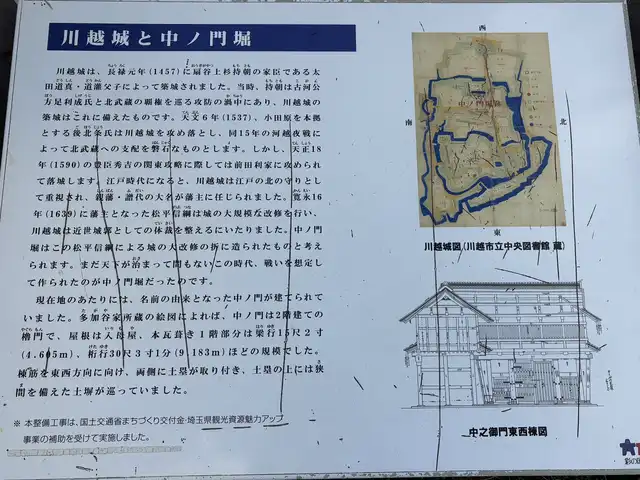 川越城と中ノ門堀
川越城は、長禄元年(1457)に扇谷上杉持朝の家臣である太
田道真・道灌父子によって築城されました。当時、持朝は古河公
方足利成氏と北武蔵の覇権を巡る攻防の渦中にあり、川越城の
築城はこれに備えたものです。天文6年(1537)、小田原を本拠
とする後北条氏は川越城を攻め落とし、同15年の河越夜戦に
よって北武蔵への支配を磐石なものとします。しかし、天正18
年(1590)の豊臣秀吉の関東攻略に際しては前田利家に攻められ
て落城します。江戸時代になると、川越城は江戸の北の守りとし
て重視され、親藩・譜代の大名が藩主に任じられました。寛永16
年(1639)に藩主となった松平信綱は城の大規模な改修を行い、
川越城は近世城郭としての体裁を整えるにいたりました。中ノ門
堀はこの松平信綱による城の大改修の折に造られたものと考え
られます。まだ天下が治まって間もないこの時代、戦いを想定し
て作られたのが中ノ門堀だったのです。
現在地のあたりには、名前の由来となった中ノ門が建てられて
いました。多加谷家所蔵の絵図によれば、中ノ門は2階建ての
櫓門で、屋根は入母屋、本瓦葺き1階部分は梁行15尺2寸
(4.605m)、桁行30尺3寸1分(9.183m)ほどの規模でした。
棟筋を東西方向に向け、両側に土塁が取り付き、土塁の上には狭
間を備えた土塀が巡っていました。
※ 本整備工事は、国土交通省まちづくり交付金・埼玉県観光資源魅力アップ
事業の補助を受けて実施しました。
西
南
北
中ノ門堀跡
東
川越城図(川越市立中央図書館 蔵)
中之御門東西棟図